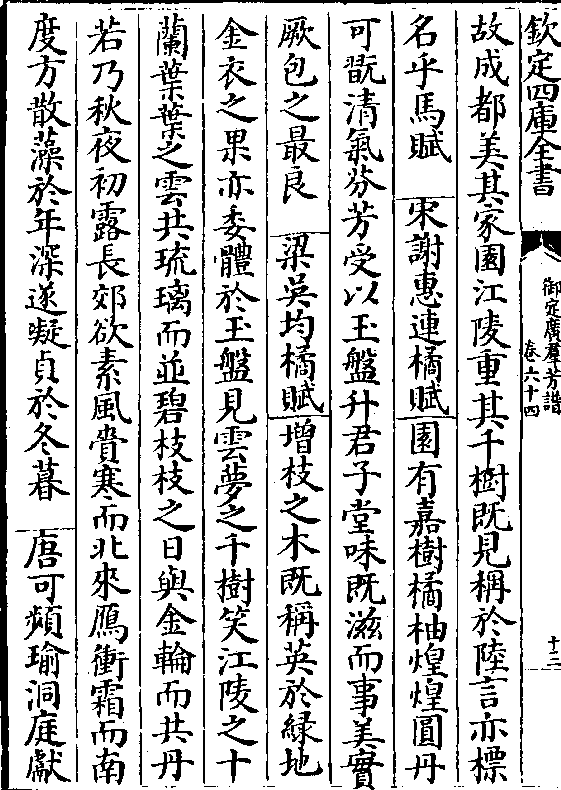 欽定四庫全書
御定廣羣芳譜
卷六十四
十三
故成都美其家園江陵重其千樹既見稱於陸言亦標
名乎馬賦　宋謝惠連橘賦園有嘉樹橘柚煌煌圓丹
可翫清氣芬芳受以玉盤升君子堂味既滋而事美實
厥包之最良　梁吳均橘賦增枝之木既稱英於緑地
金衣之果亦委體於玉盤見雲夢之千樹笑江陵之十
蘭葉葉之雲共琉璃而並碧枝枝之日與金輪而共丹
若乃秋夜初露長郊欲素風賫寒而北來鴈衝霜而南
度方散藻於年深遂凝貞於冬暮　唐可頻瑜洞庭獻